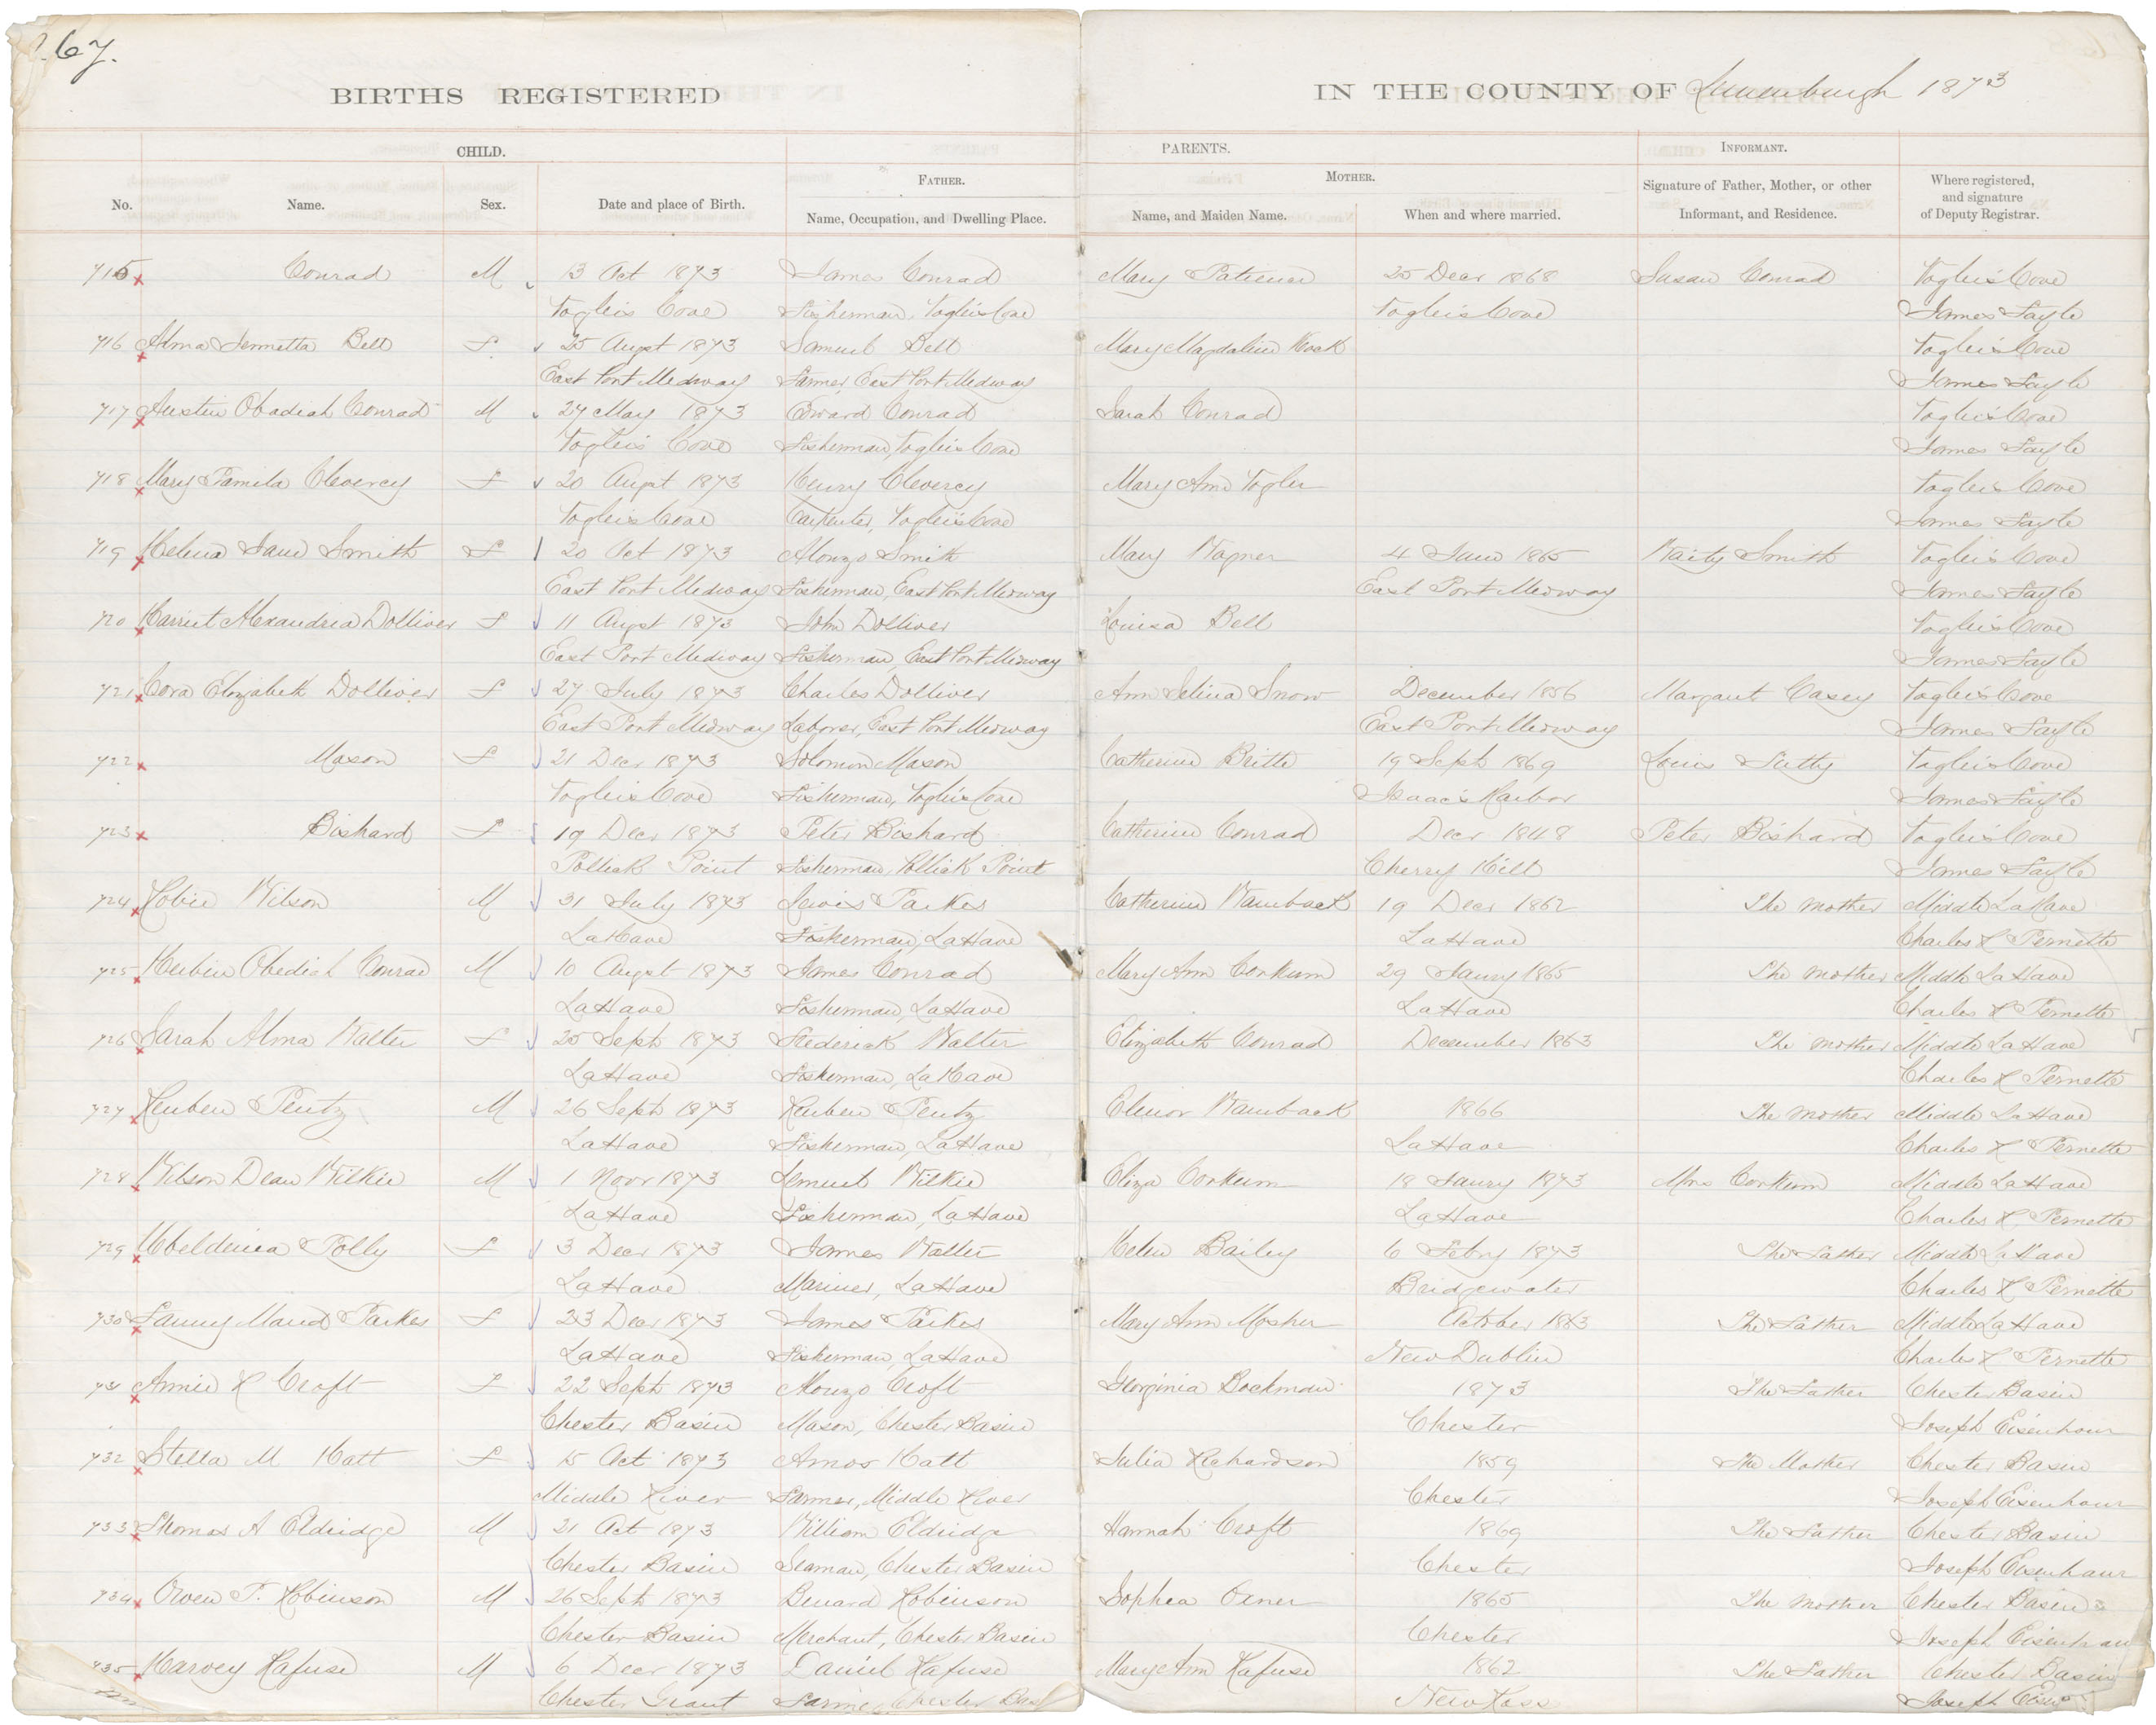 P. 67.
BIRTHS REGISTERED IN THE COUNTY OF Lunenburgh 1873
CHILD. PARENTS. INFORMANT.
FATHER. MOTHER.
No. Name. Sex. Date and place of Birth. Name, Occupation, and Dwelling Place. Name, and Maiden Name. When and where married. Signature of Father, Mother, or other Informant, and Residence. Where registered, and signature of Deputy Registrar.
715 Conrad M 13 Oct 1873 James Conrad Mary Patience 25 Decr 1868 Susan Conrad Voglers Cove
Voglers Cove Fisherman, Voglers Cove Voglers Cove James Sayle
716 Alma Jennetta Bell F 25 Augst 1873 Samuel Bell Mary Magdaline Voglers Cove
East Port Medway Farmer, East Port Medway James Sayle
717 Austin Obadiah Conrad M 27 May 1873 Edward Conrad Sarah Conrad Voglers Cove
Voglers Cove Fisherman, Voglers Cove James Sayle
718 Mary Pamela Clevercy F 20 Augst 1873 Henry Clevercy Mary Ann Vogler Voglers Cove
Voglers Cove Carpenter, Voglers Cove James Sayle
719 Helena Jane Smith F 20 Oct 1873 Alonzo Smith Mary Wagner 4 June 1865 Waity Smith Voglers Cove
East Port Medway Fisherman, East Port Medway East Port Medway James Sayle
720 Harriet Alexandria Dolliver F 11 Augst 1873 John Dolliver Louisa Bell Voglers Cove
East Port Medway Fisherman, East Port Medway James Sayle
721 Cora Elizabeth Dolliver F 27 July 1873 Charles Dolliver Ann Selina Snow December 1856 Margaret Casey Voglers Cove
East Port Medway Laborer, East Port Medway East Port Medway James Sayle
722 Mason F 21 Decr 1873 Solomon Mason Catherine Britte 19 Sept 1869 Voglers Cove
Voglers Cove Fisherman, Voglers Cove Isaac's Harbor James Sayle
723 Bishard F 19 Decr 1873 Peter Bishard Catherine Conrad Decr 1848 Peter Bishard Voglers Cove
Pollick Point Fisherman, Pollick Point Cherry Hill James Sayle
724 Robie Wilson M 31 July 1873 Lewis Parkes Catherine Wamback 19 Decr 1862 The Mother Middle LaHave
LaHave Fisherman, LaHave LaHave Charles H Pernette
725 Obediah Conrad M 10 Augst 1873 James Conrad Mary Ann Corkum 29 Jany 1865 The Mother Middle LaHave
LaHave Fisherman, LaHave LaHave Charles H Pernette
726 Sarah Alma Walter F 25 Sept 1873 Frederick Walter Elizabeth Conrad December 1863 The Mother Middle LaHave
LaHave Fisherman, LaHave Charles H Pernette
727 Reuben Pentz M 26 Sept 1873 Reuben Pentz Elenor Wamback 1866 The Mother Middle LaHave
LaHave Fisherman, LaHave LaHave Charles H Pernette
728 Wilson Dean Wilkie M 1 Novr 1873 Lemuel Wilkie Eliza Corkum 18 Jany 1873 Mrs Corkum Middle LaHave
LaHave Fisherman, LaHave LaHave Charles H Pernette
729 Polly F 3 Decr 1873 James Walter Helen Bailey 6 Febry 1873 The Father Middle LaHave
LaHave Mariner, LaHave Bridgewater Charles H Pernette
730 Fanny Maud Parkes F 23 Decr 1873 James Parkes Mary Ann Mosher October 1863 The Father Middle LaHave
LaHave Fisherman, LaHave New Dublin Charles H Pernette
731 Annie H Croft F 22 Sept 1873 Alonzo Croft Georginia Bockman 1873 The Father Chester Basin
Chester Basin Mason, Chester Basin Chester Joseph Eisenhaur
732 Stella M Hatt F 15 Oct 1873 Amos Hatt Julia Richardson 1859 The Mother Chester Basin
Middle River Farmer, Middle River Chester Joseph Eisenhaur
733 Thomas A Eldridge M 21 Oct 1873 William Eldridge Hannah Croft 1869 The Father Chester Basin
Chester Basin Seaman, Chester Basin Chester Joseph Eisenhaur
734 Owen T. Robinson M 26 Sept 1873 Benard Robinson Sophea Oxner 1865 The Mother Chester Basin
Chester Basin Merchant, Chester Basin Chester Joseph Eisenhaur
735 Harvey Hafuse M 6 Decr 1873 Daniel Hafuse Mary Ann Hafuse 1862 The Father Chester Basin
Chester Grant Farmer, Chester New Ross Joseph